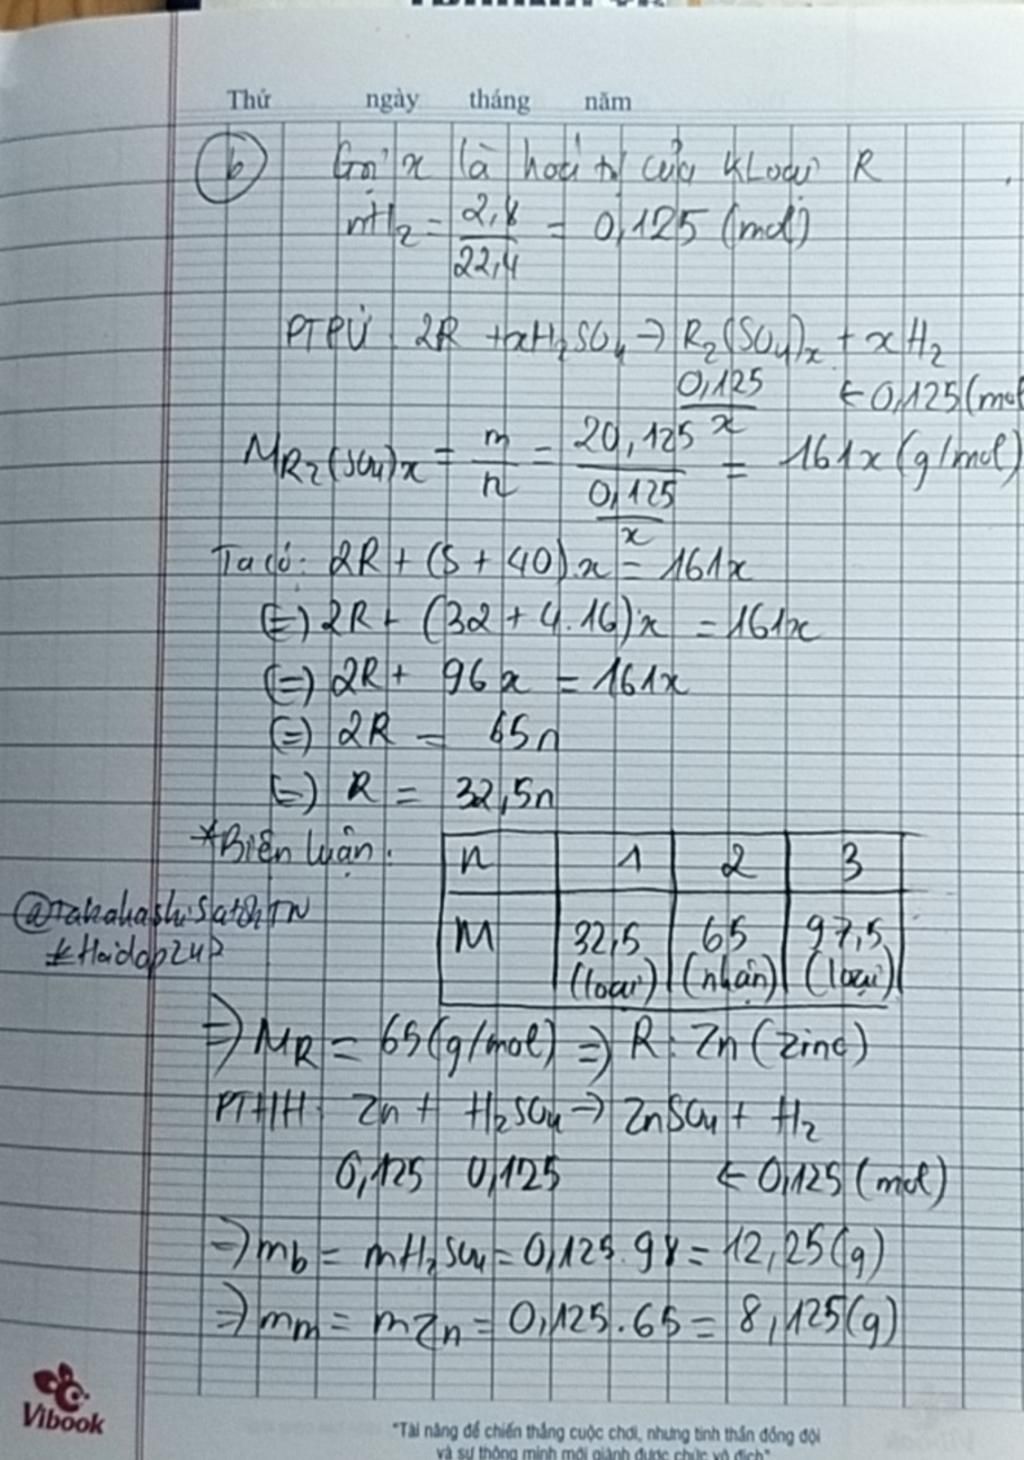 Thứ ngày tháng năm
b Gọi x là hoá trị của kloại R
nH2 = 2,8/22,4 = 0,125 (mol)
PTPỨ: 2R + xH2SO4 → R2(SO4)x + xH2
0,125/x ← 0,125 (mol
MR2(SO4)x = m/n = 20,125/(0,125/x) = 161x (g/mol)
Ta có: 2R + (S + 4O).x = 161x
(=) 2R + (32 + 4.16)x = 161x
(=) 2R + 96x = 161x
(=) 2R = 65n
(=) R = 32,5n
*Biện luận:
n 1 2 3
M 32,5 (loại) 65 (nhận) 97,5 (loại)
@TakahashiSatoiTN
#Hoidap247
=) MR = 65 (g/mol) =) R: Zn (zinc)
PTHH: Zn + H2SO4 → ZnSO4 + H2
0,125 0,125 ← 0,125 (mol)
=) mb = mH2SO4 = 0,125.98 = 12,25 (g)
=) mm = mZn = 0,125.65 = 8,125 (g)
Vibook
"Tài năng để chiến thắng cuộc chơi, nhưng tinh thần đồng đội
và sự thông minh mới giành được chức vô địch"